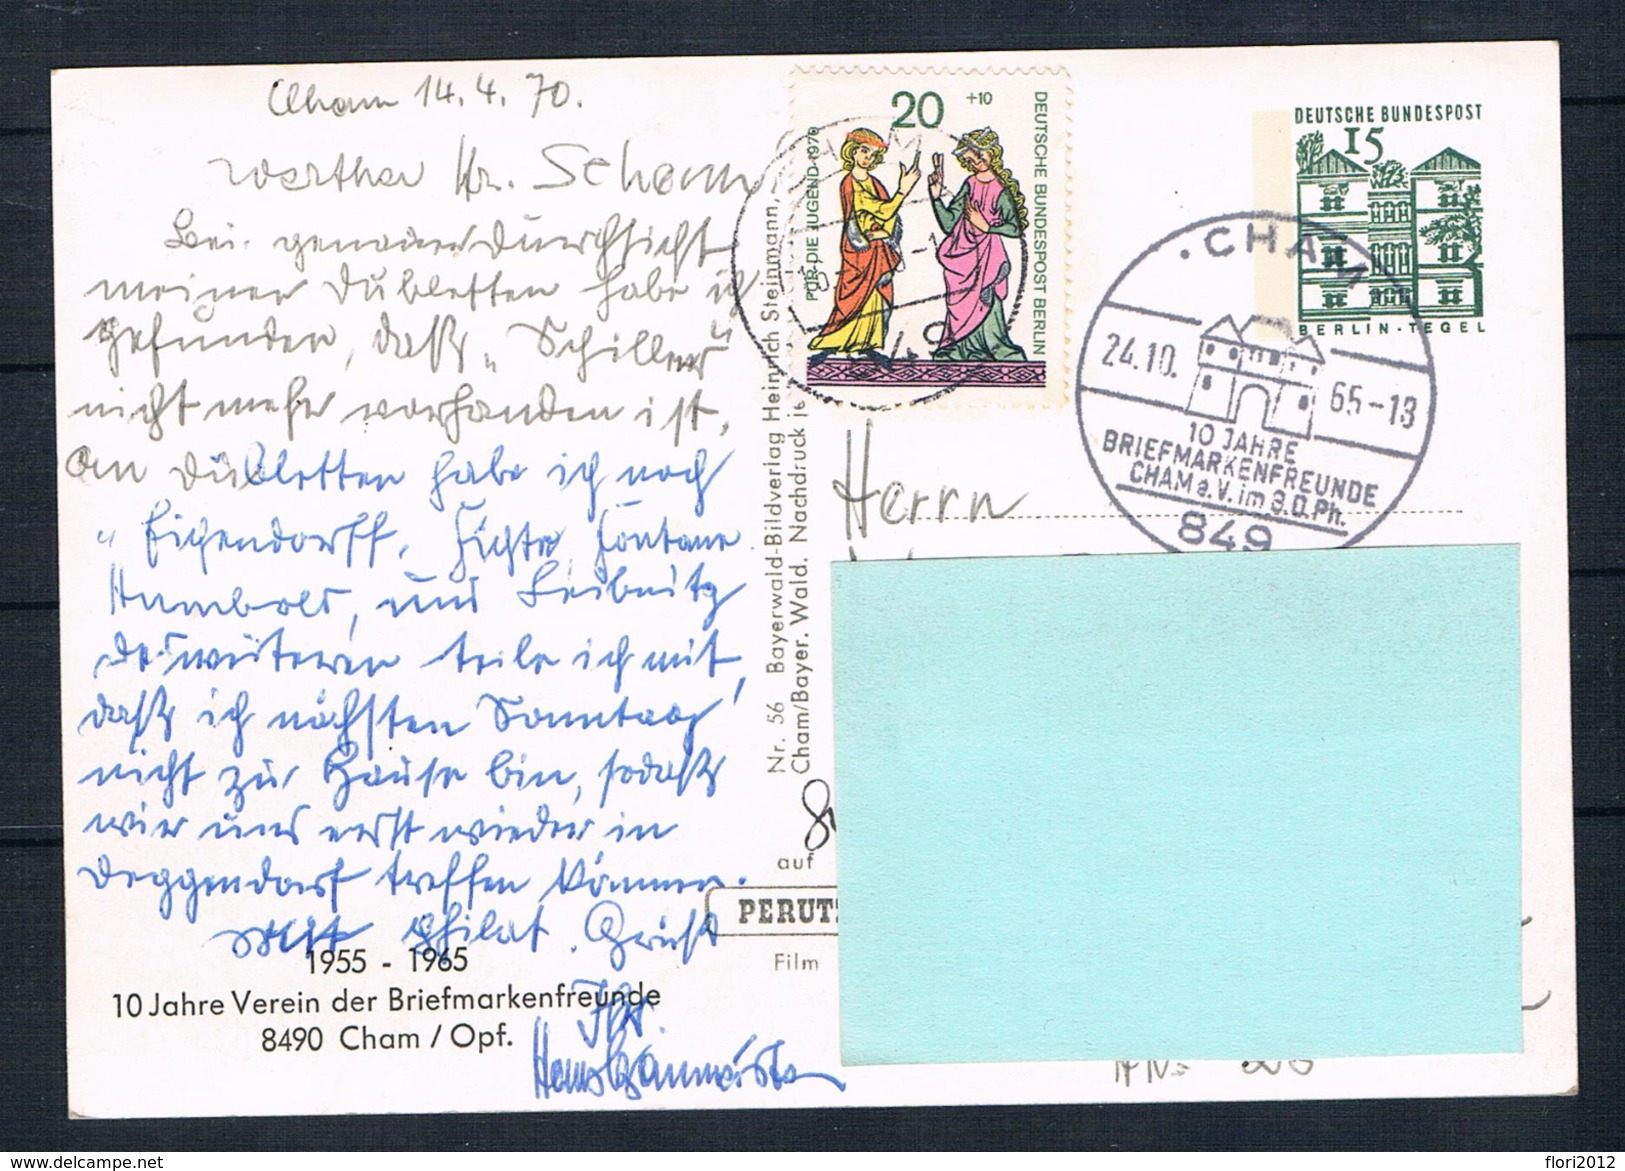 Cham 14.4.70.
Werther Hr. Scham
Bei genauer Durchsicht
meiner Dubletten habe ich
gefunden, daß „Schiller"
nicht mehr vorhanden ist.
An Dubletten habe ich noch
„Eichendorff, Fichte, Fontane
Humbold, und Leibnitz
desweiteren teile ich mit,
daß ich nächsten Sonntag
nicht zu Hause bin, sodaß
wir uns erst wieder in
Deggendorf treffen können.
Mit Philat. Gruß
Ihr.
1955 - 1965
10 Jahre Verein der Briefmarkenfreunde
8490 Cham / Opf.
Nr. 56 Bayerwald-Bildverlag Heinrich Steinmann,
Cham/Bayer. Wald. Nachdruck
auf
PERUTZ
Film
20 +10
FÜR DIE JUGEND 1970
DEUTSCHE BUNDESPOST BERLIN
DEUTSCHE BUNDESPOST
15
BERLIN-TEGEL
CHAM
24.10. 65-13
10 JAHRE
BRIEFMARKENFREUNDE
CHAM e.V. im B.D.Ph.
849
Herrn
delcampe.net
flori2012